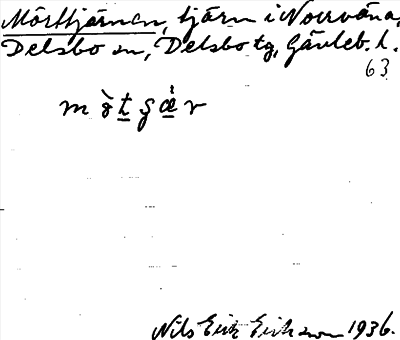 Mörttjärnen, tjärn i Norrväna,
Delsbo sn, Delsbo tg, Gävleb. l.
63
Nils Erik Eriksson 1936.